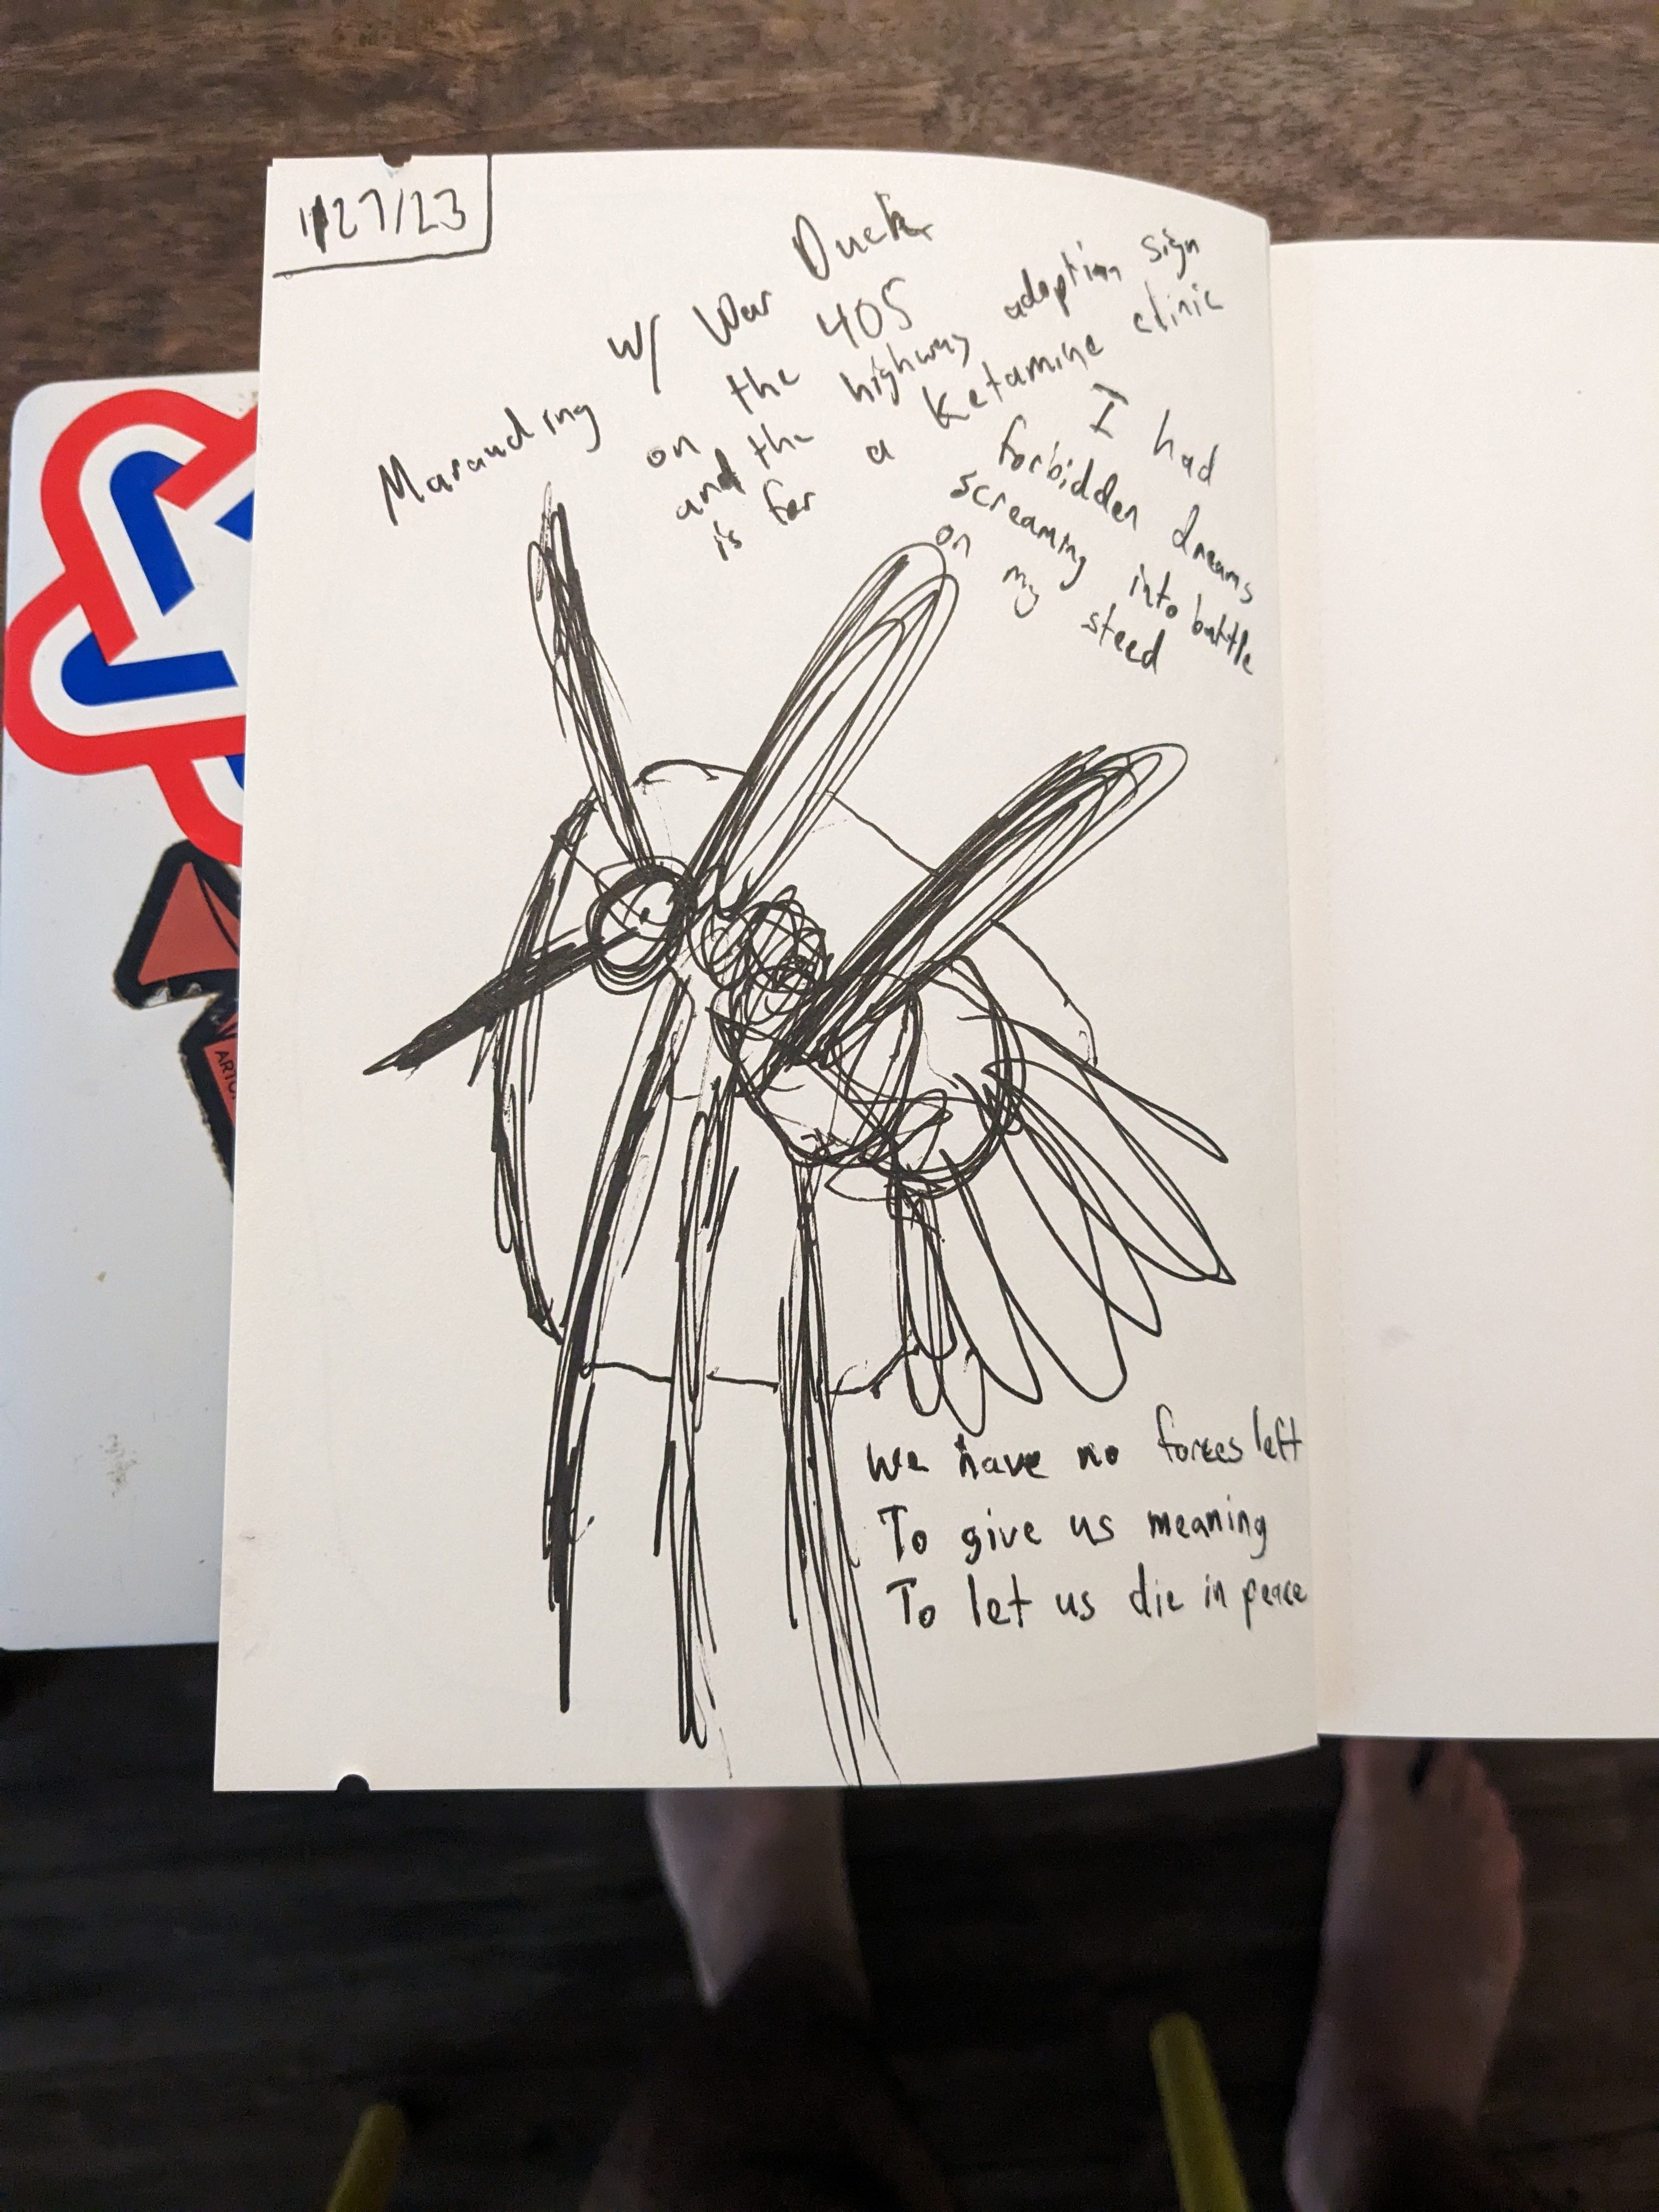 1/27/23
Marauding w/ War Duck
on the 405
and the highway adoption sign
is for a Ketamine clinic
I had
forbidden dreams
screaming into battle
on my steed
we have no forces left
To give us meaning
To let us die in peace